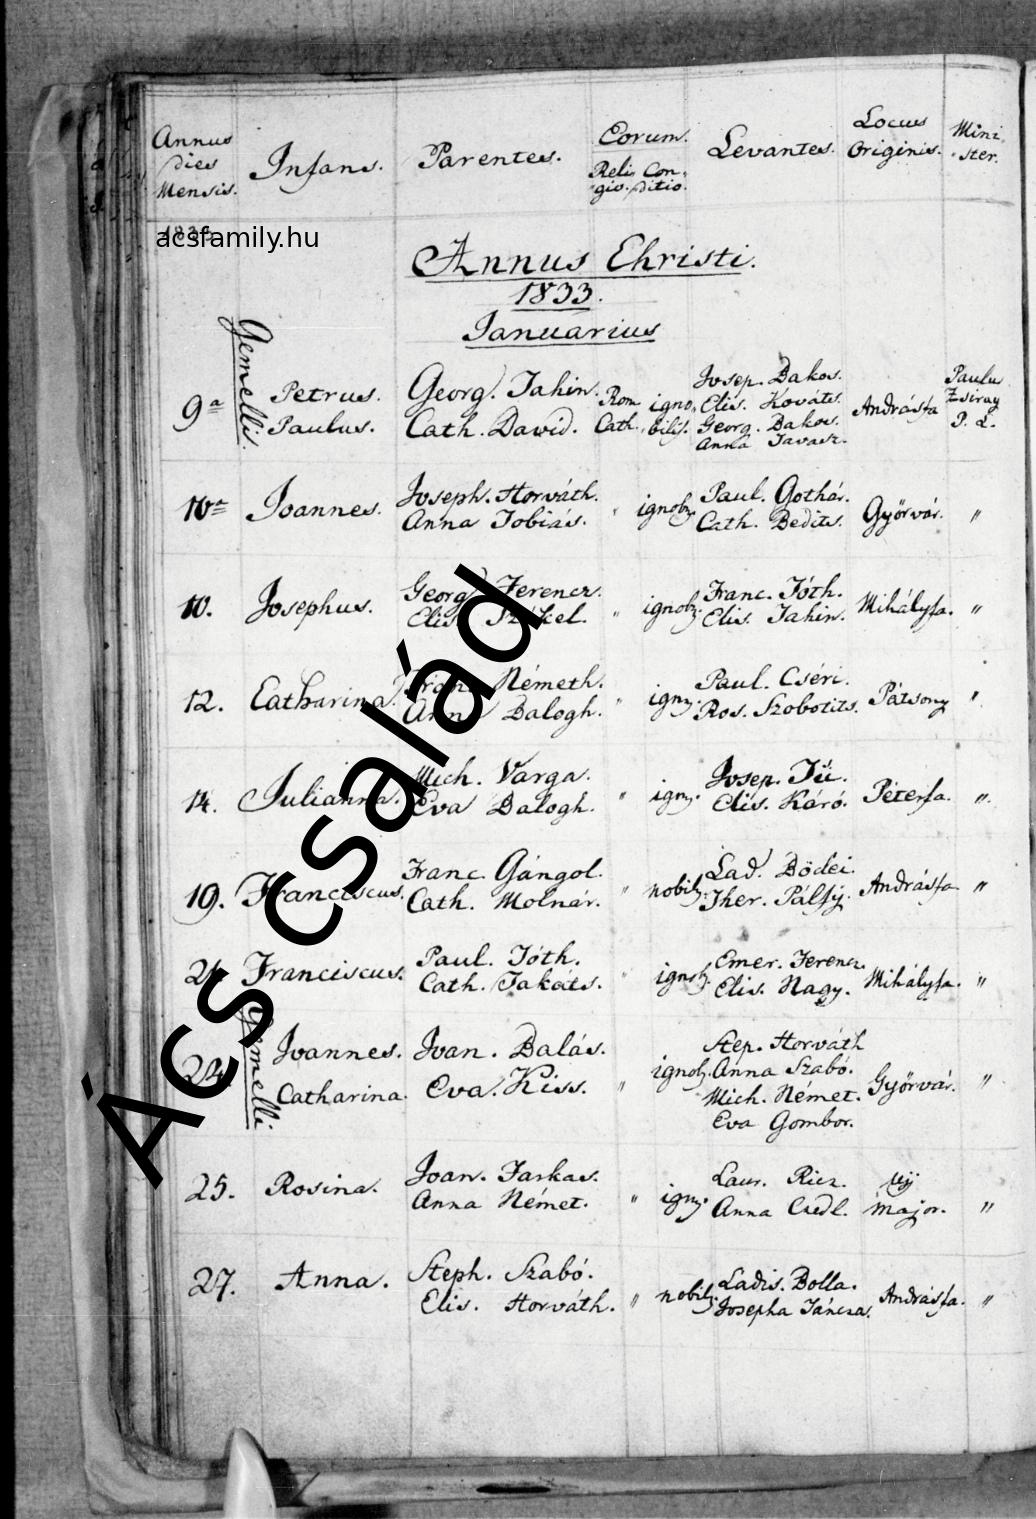 Annus dies Mensis.
Infans.
Parentes.
Eorum.
Reli- Con-
gio. ditio.
Levantes.
Locus Originis.
Mini-
ster.
acsfamily.hu
Annus Christi.
1833.
Ianuarius
Gemelli.
9a Petrus. Georg. Iahin. Rom. igno- Josep. Bakos. Andrásfa Paulus
Elis. Kováts. Zsiray
Paulus. Cath. Dawid. Cath. bilis. Georg. Bakos. P. L.
Anna Tavasz.
10a Joannes. Joseph. Horváth. " ignob. Paul. Gothár. Győrvár. "
Anna Tobiás. Cath. Bedits.
10. Josephus. Georg. Ferencz. " ignob. Franc. Tóth. Mihályfa. "
Elis. Székel. Elis. Iahin.
12. Catharina. Franc. Németh. " ign. Paul. Cséri. Pátsony "
Anna Balogh. Ros. Szobotits.
14. Julianna. Mich. Varga. " ign. Josep. Tü. Péterfa. "
Eva Balogh. Elis. Káró.
19. Franciscus. Franc. Gángol. " nobil. Lad. Bödei. Andrásfa "
Cath. Molnár. Ther. Pálfy.
Franciscus. Paul. Tóth. " ignob. Emer. Ferencz. Mihályfa. "
Cath. Takáts. Elis. Nagy.
Gemelli.
24. Joannes. Joan. Balás. " ignob. Step. Horváth Győrvár. "
Anna Szabó.
Catharina. Eva. Kiss. Mich. Német.
Eva Gombor.
25. Rosina. Joan. Farkas. " ign. Laur. Ricz. Uj "
Anna Német. Anna Csedl. major.
27. Anna. Steph. Szabó. " nobil. Ladis. Bolla. Andrásfa. "
Elis. Horváth. Josepha Jáncsa.
Ács család